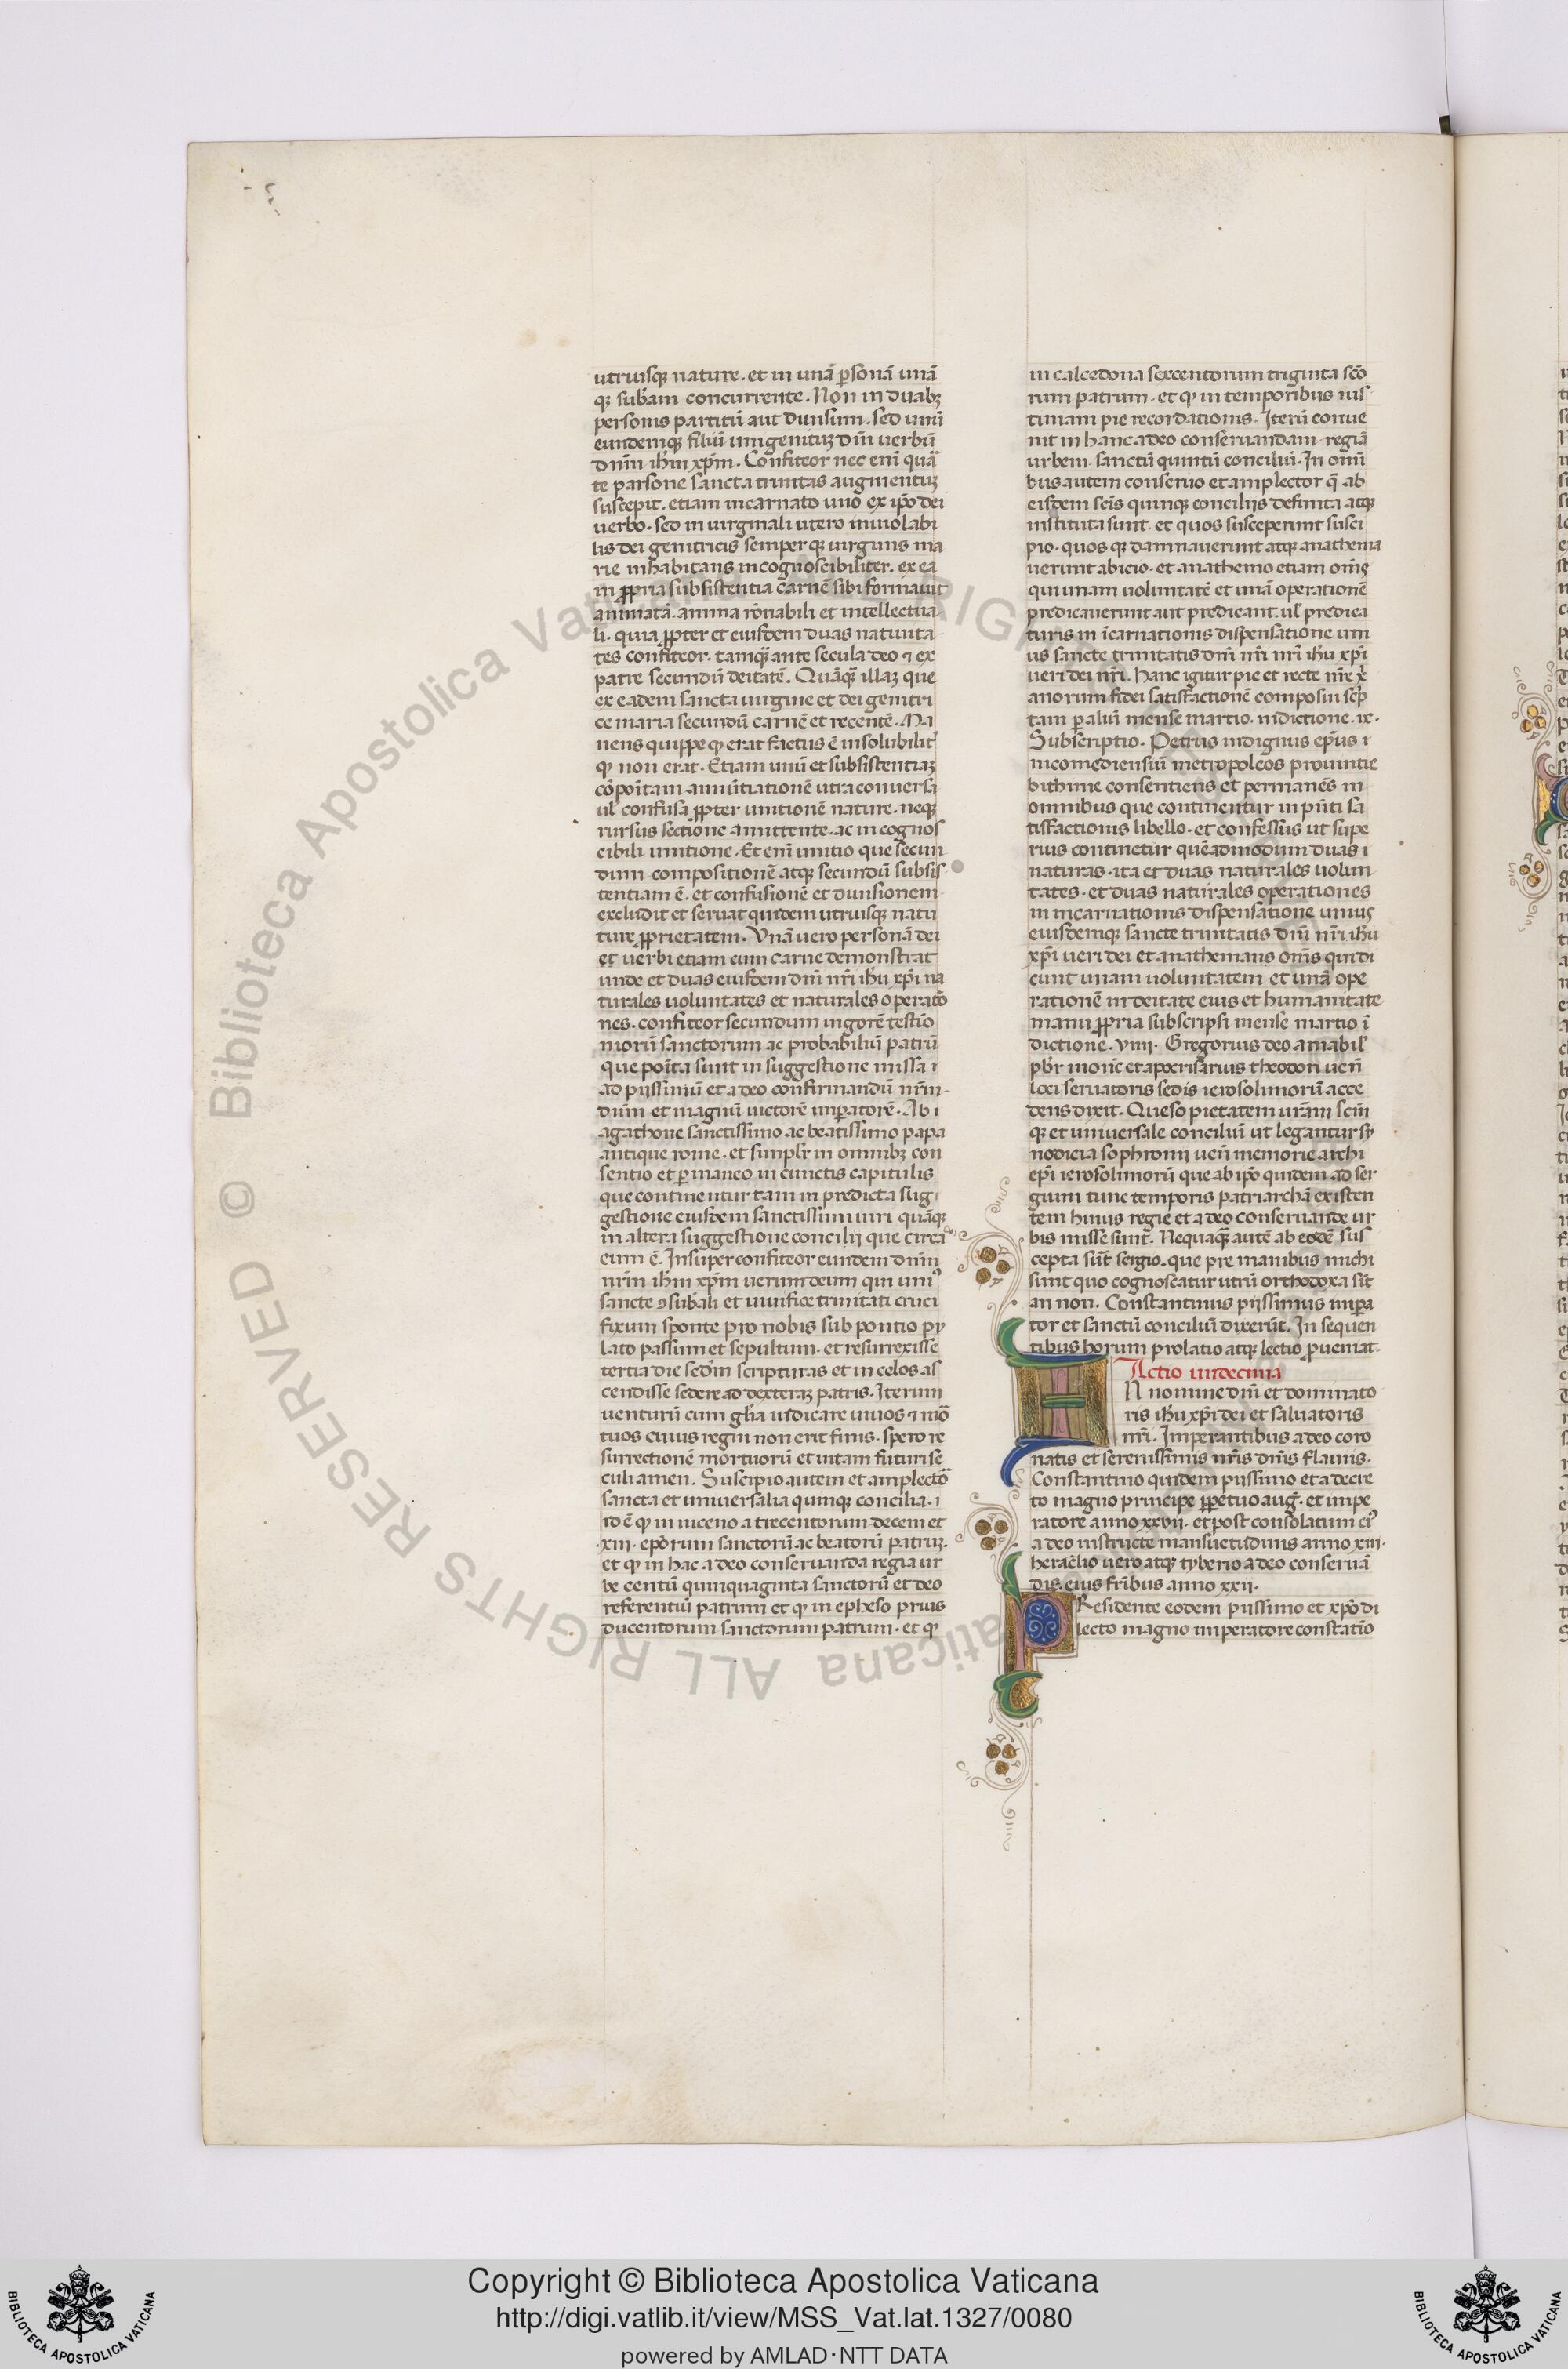 utruisqꝫ nature. et in unā ꝑsonā unā
qꝫ sub̄am concurrente. Non in duabꝫ
personis partitū aut diuisum. sed unū
eundemqꝫ filiū unigenitūꝫ dm̄ uerbū
dnm̄ ih̄m xp̄m. Confiteor nec eni quā
te parsone sancta trinitas augmentūꝫ
suscepit. etiam incarnato uno ex ip̄o dei
uerbo. sed in uirginali utero inuiolabi
lis dei genitricis semper qꝫ uirginis ma
rie inhabitans incognoscibiliter. ex ea
in ꝓpria subsistentia carnē sibi formauit
animatā. anima rōnabili et intellectua
li. quia ꝓpter et eiusdem duas natiuita
tes confiteor. tamqꝫ ante secula deo ⁊ ex
patre secundū deitatē. Quāqꝫ illaꝫ que
ex eadem sancta uirgine et dei genitri
ce maria secundū carnē et recentē. Ma
nens quippe qꝫ erat factus ē insolubilit̉
qꝫ non erat. Etiam unū et subsistentiaꝫ
cōpoitam annūtiationē utra conuersa
ul̉ confusa ꝓpter unitionē nature. neqꝫ
rursus sectione amittente. ac in cognos
cibili unitione. Et eni unitio que secun
dum compositionē atqꝫ secundū subsis
tentiam ē. et confusionē et diuisionem
excludit et seruat quidem utruisqꝫ natu
ture ꝓprietatem. Vnā uero personā dei
et uerbi etiam cum carne demonstrat
unde et duas eiusdem dni nr̄i ih̄u xp̄i na
turales uoluntates et naturales operatō
nes. confiteor secundum uigorē testīo
moriū sanctorum ac probabiliū patrū
que poīta sunt in suggestione missa i
ad piissimū et a deo confirmandū nr̄m
dnm̄ et magnū uictorē imꝑatorē. Ab i
agathone sanctissimo ac beatissimo papa
antique rome. et simpl̉r in omnibꝫ con
sentio et ꝑmaneo in cunctis capitulis
que continentur tam in predicta sug
gestione eiusdem sanctissimi uiri quāqꝫ
in altera suggestione concilii que circa
eum ē. Insuper confiteor eundem dnm̄
nr̄m ih̄m xp̄m uerum deum qui uni⁹
sancte ꝯsub̄ali et uiuifice trinitati cruci
fixum sponte pro nobis sub pontio py
lato passum et sepultum. et resurrexisse
tertia die sedm̄ scripturas et in celos as
cendisse sedere ad dexteraꝫ patris. Iterum
uenturū cum gl̄ia iudicare uiuos ⁊ mō
tuos cuius regni non erit finis. spero re
surrectionē mortuorū et uitam futuri se
culi amen. Suscipio autem et amplectō
sancta et uniuersalia quinqꝫ concilia. i
id ē qꝫ in niceno a trecentorum decem et
.xiii. epōrum sanctorū ac beatorū patruꝫ.
et qꝫ in hac a deo conseruanda regia ur
be centū quinquaginta sanctorū et deo
referentiū patrum et qꝫ in epheso prius
ducentorum sanctorum patrum. et qꝫ
in calcedona sexcentorum triginta scō
rum patrum. et qꝫ in temporibus ius
tiniam pie recordationis. Iterū conue
nit in hanc a deo conseruandam regiā
urbem. sanctū quintū conciliū. In omni
bus autem conseruo et amplector q̄ ab
eisdem scīs quinqꝫ conciliis definita atqꝫ
instituta sunt. et quos susceperunt susci
pio. quos qꝫ damnauerunt atqꝫ anathema
uerunt abicio. et anathemo etiam om̄s
qui unam uoluntatē et unā operationē
predicauerunt aut predicant. ul̉ predica
turis in īcarnationis dispensatione uni
us sancte trinitatis dni nr̄i nr̄i ih̄u xp̄i
ueri dei nr̄i. Hanc igitur pie et recte nr̄e xp̄i
anorum fidei satisfactionē composui scrip̄
tam ꝑ aliū mense martio. indictione .ix.
Subscriptio. Petrus indignus ep̄us i
nicomediensiū metropoleos prouintie
bithinie consentiens et permanēs in
omnibus que continentur in pn̄ti sa
tisfactionis libello. et confessus ut supe
rius continetur quēadmodum duas i
naturas. ita et duas naturales uolun
tates. et duas naturales operationes
in incarnationis dispensatione unius
eiusdemqꝫ sancte trinitatis dni nr̄i ih̄u
xp̄i ueri dei et anathemans om̄s qui di
cunt unam uoluntatem et unā ope
rationē in deitate eius et humanitate
manu ꝓpria subscripsi mense martio ī
dictione .viiii. Gregorius deo amabil̉
pb̄r monc̄ et apocrisarius theodori uen̄
loci seruatoris sedis ierosolimorū acce
dens dixit. Queso pietatem ur̄am scm̄
qꝫ et uniuersale conciliū ut legantur sy
nodicia sophronii uen̄ memorie archi
ep̄i ierosolimorū que ab ip̄o quidem ad ser
gium tunc temporis patriarchā existen
tem huius regie et a deo conseruande ur
bis misse sunt. Nequaqꝫ autē ab eodē sus
cepta sūt sergio. que pre manibus michi
sunt quo cognoscatur utrū orthodoxa sīt
an non. Constantinus piissimus impa
tor et sanctū conciliū dixerūt. In sequen
tibus horum prolatio atqꝫ lectio ꝓueniat.
Actio undecima
IN nomine dni et dominato
ris ih̄u xp̄i dei et saluatoris
nr̄i. Imperantibus a deo coro
natis et serenissimis nr̄is dnis flauiis.
Constantino quidem piissimo et a decre
to magno principe ꝑpetuo aug̉. et impe
ratore anno xxvii. et post consolatum ei⁹
a deo instructe mansuetudinis anno xiii.
heraclio uero atqꝫ tyberio a deo conseruā
dis eius fr̄ibus anno xxii.
PResidente eodem piissimo et xp̄o di
lecto magno imperatore constātīo
© Biblioteca Apostolica Vaticana ALL RIGHTS RESERVED
Copyright © Biblioteca Apostolica Vaticana
http://digi.vatlib.it/view/MSS_Vat.lat.1327/0080
powered by AMLAD·NTT DATA
BIBLIOTECA APOSTOLICA VATICANA
BIBLIOTECA APOSTOLICA VATICANA